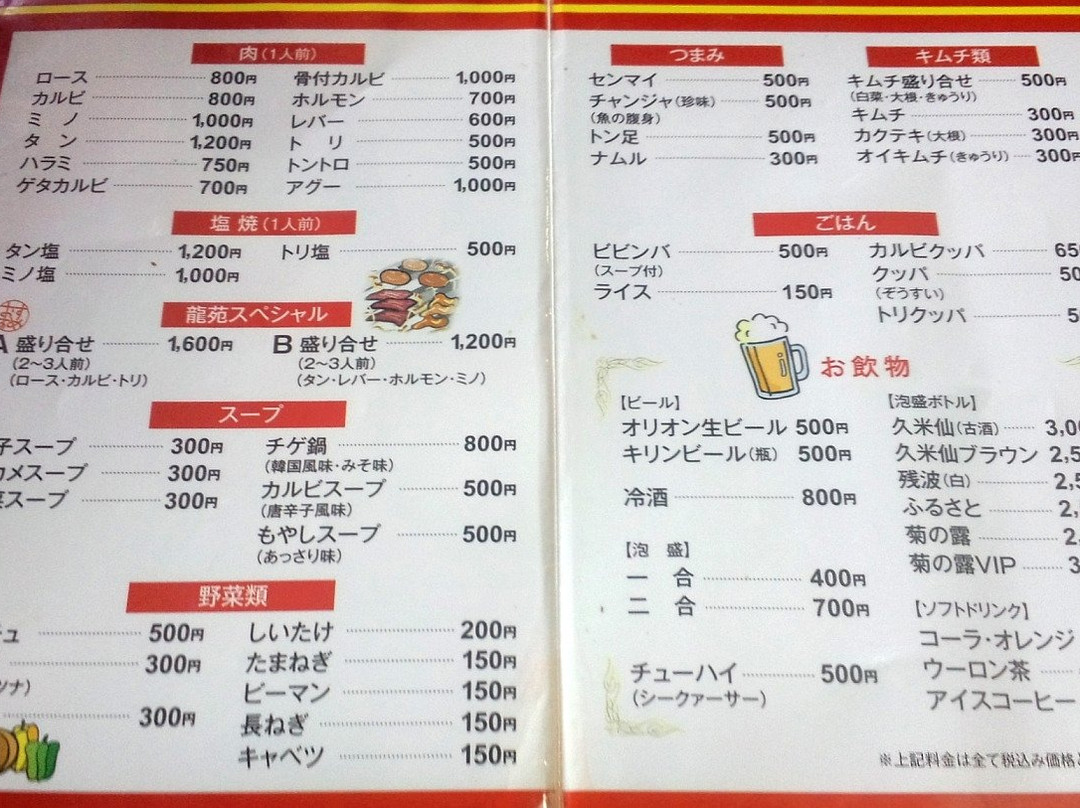 肉(1人前)
ロース 800円
カルビ 800円
ミノ 1,000円
タン 1,200円
ハラミ 750円
ゲタカルビ 700円
骨付カルビ 1,000円
ホルモン 700円
レバー 600円
トリ 500円
トントロ 500円
アグー 1,000円
塩焼(1人前)
タン塩 1,200円
ミノ塩 1,000円
トリ塩 500円
龍苑スペシャル
A 盛り合せ 1,600円
(2〜3人前)
(ロース・カルビ・トリ)
B 盛り合せ 1,200円
(2〜3人前)
(タン・レバー・ホルモン・ミノ)
スープ
子スープ 300円
カメスープ 300円
スープ 300円
チゲ鍋 800円
(韓国風味・みそ味)
カルビスープ 500円
(唐辛子風味)
もやしスープ 500円
(あっさり味)
野菜類
ュ 500円
300円
ツナ)
300円
しいたけ 200円
たまねぎ 150円
ピーマン 150円
長ねぎ 150円
キャベツ 150円
つまみ
センマイ 500円
チャンジャ(珍味) 500円
(魚の腹身)
トン足 500円
ナムル 300円
キムチ類
キムチ盛り合せ 500円
(白菜・大根・きゅうり)
キムチ 300円
カクテキ(大根) 300円
オイキムチ(きゅうり) 300円
ごはん
ビビンバ 500円
(スープ付)
ライス 150円
カルビクッパ 650
クッパ 50
(ぞうすい)
トリクッパ 5
お飲物
【ビール】
オリオン生ビール 500円
キリンビール(瓶) 500円
冷酒 800円
【泡盛】
一合 400円
二合 700円
チューハイ 500円
(シークァーサー)
【泡盛ボトル】
久米仙(古酒) 3,0
久米仙ブラウン 2,5
残波(白) 2,5
ふるさと 2,
菊の露 2,
菊の露VIP 3
【ソフトドリンク】
コーラ・オレンジ
ウーロン茶
アイスコーヒー
※上記料金は全て税込み価格